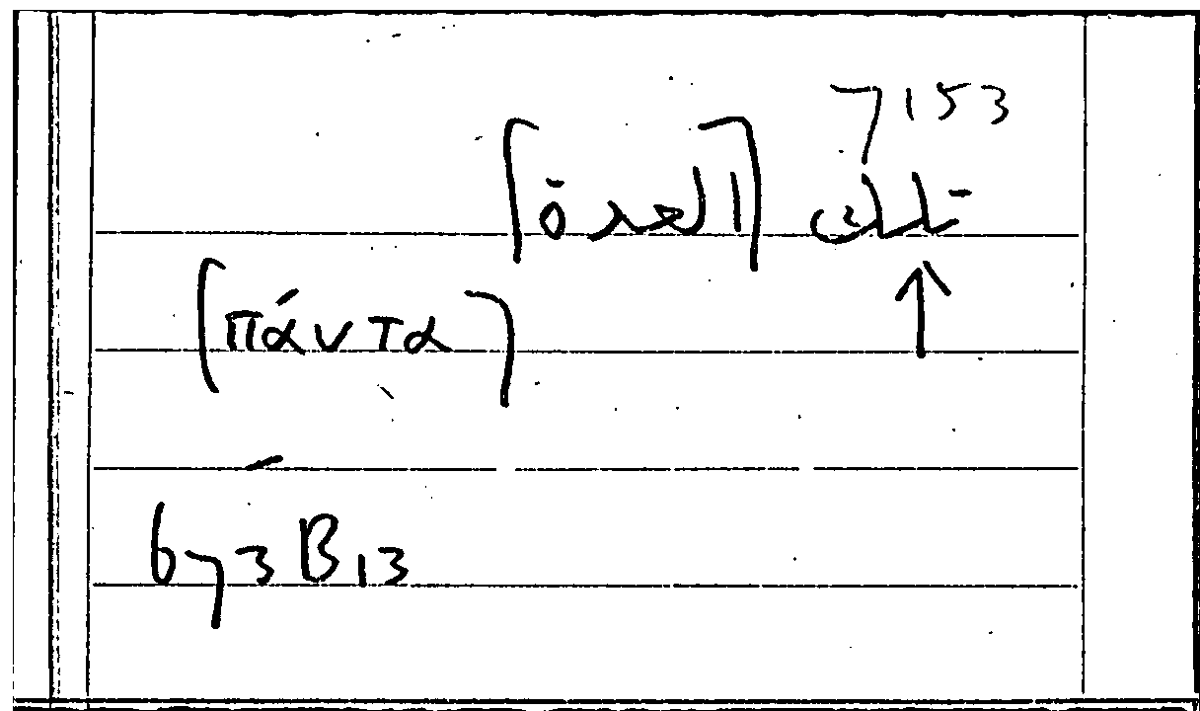 7153
تلك [العدة]
[πάντα]
673 B13